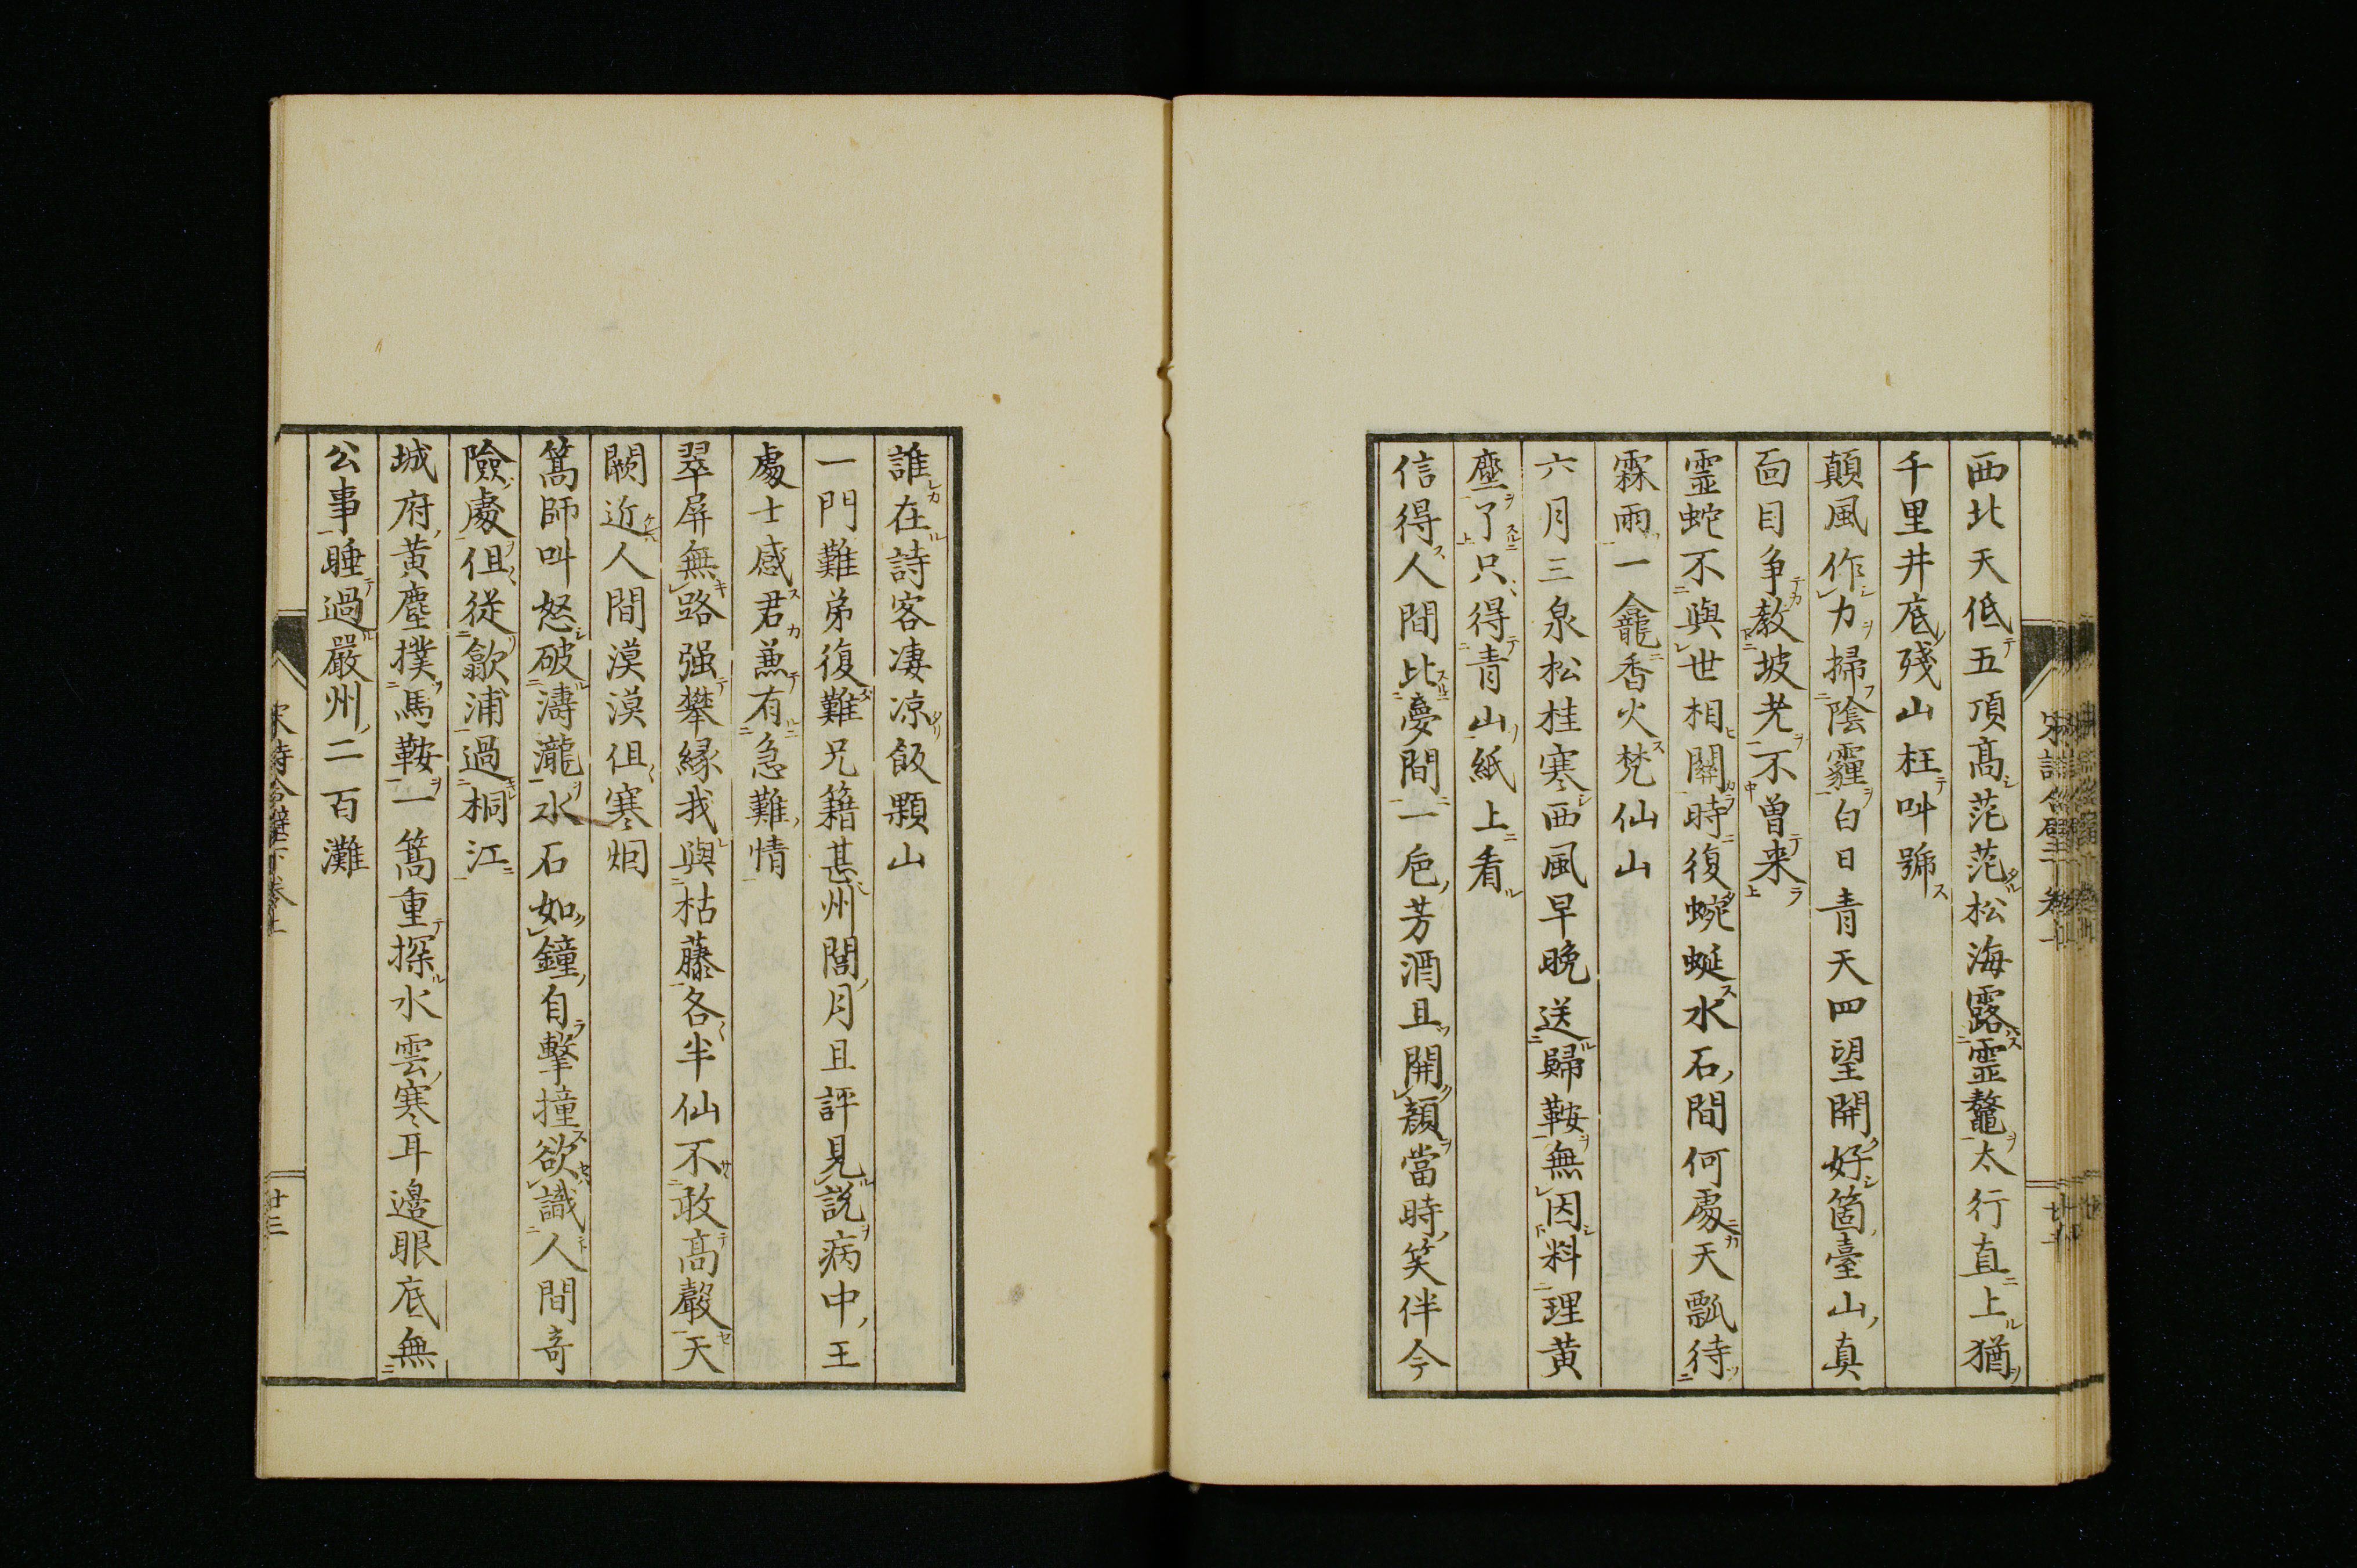 西北天低五頂髙茫茫松海露靈鼇太行直上猶
千里井底殘山枉叫號
顛風作力掃陰霾白日青天四望開好箇臺山真
面目争教坡老不曽来
靈蛇不與世相關時復蜿蜒水石間何處天瓢待
霖雨一龕香火梵仙山
六月三泉松桂寒西風早晩送歸鞍無因料理黄
塵了只得青山紙上看
信得人間比夢間一巵芳酒且開顔當時笑伴今
誰在詩客凄凉飯顆山
一門難弟復難兄籍甚州閭月旦評見説病中王
處士感君兼有急難情
翠屏無路强攀縁我與枯藤各半仙不敢髙聲天
闕近人間漠漠但寒烟
篙師叫怒破濤瀧水石如鐘自擊撞欲識人間奇
險處但從歙浦過桐江
城府黄塵撲馬鞍一篙重探水雲寒耳邊眼底無
公事睡過嚴州二百灘
廿三